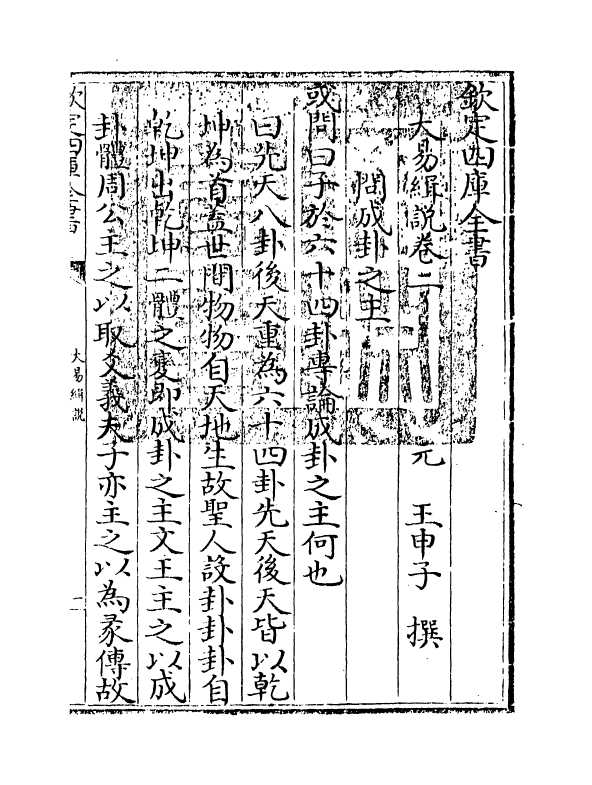 欽定四庫全書
大易緝說卷二
元 王申子 撰
問成卦之主
或問曰子於六十四卦專論成卦之主何也
曰先天八卦後天重為六十四卦先天後天皆以乾
坤為首蓋世間物物自天地生故聖人設卦卦卦自
乾坤出乾坤二體之變即成卦之主文王主之以成
卦體周公主之以取爻義夫子亦主之以為彖傳故
欽定四庫全書
大易緝說